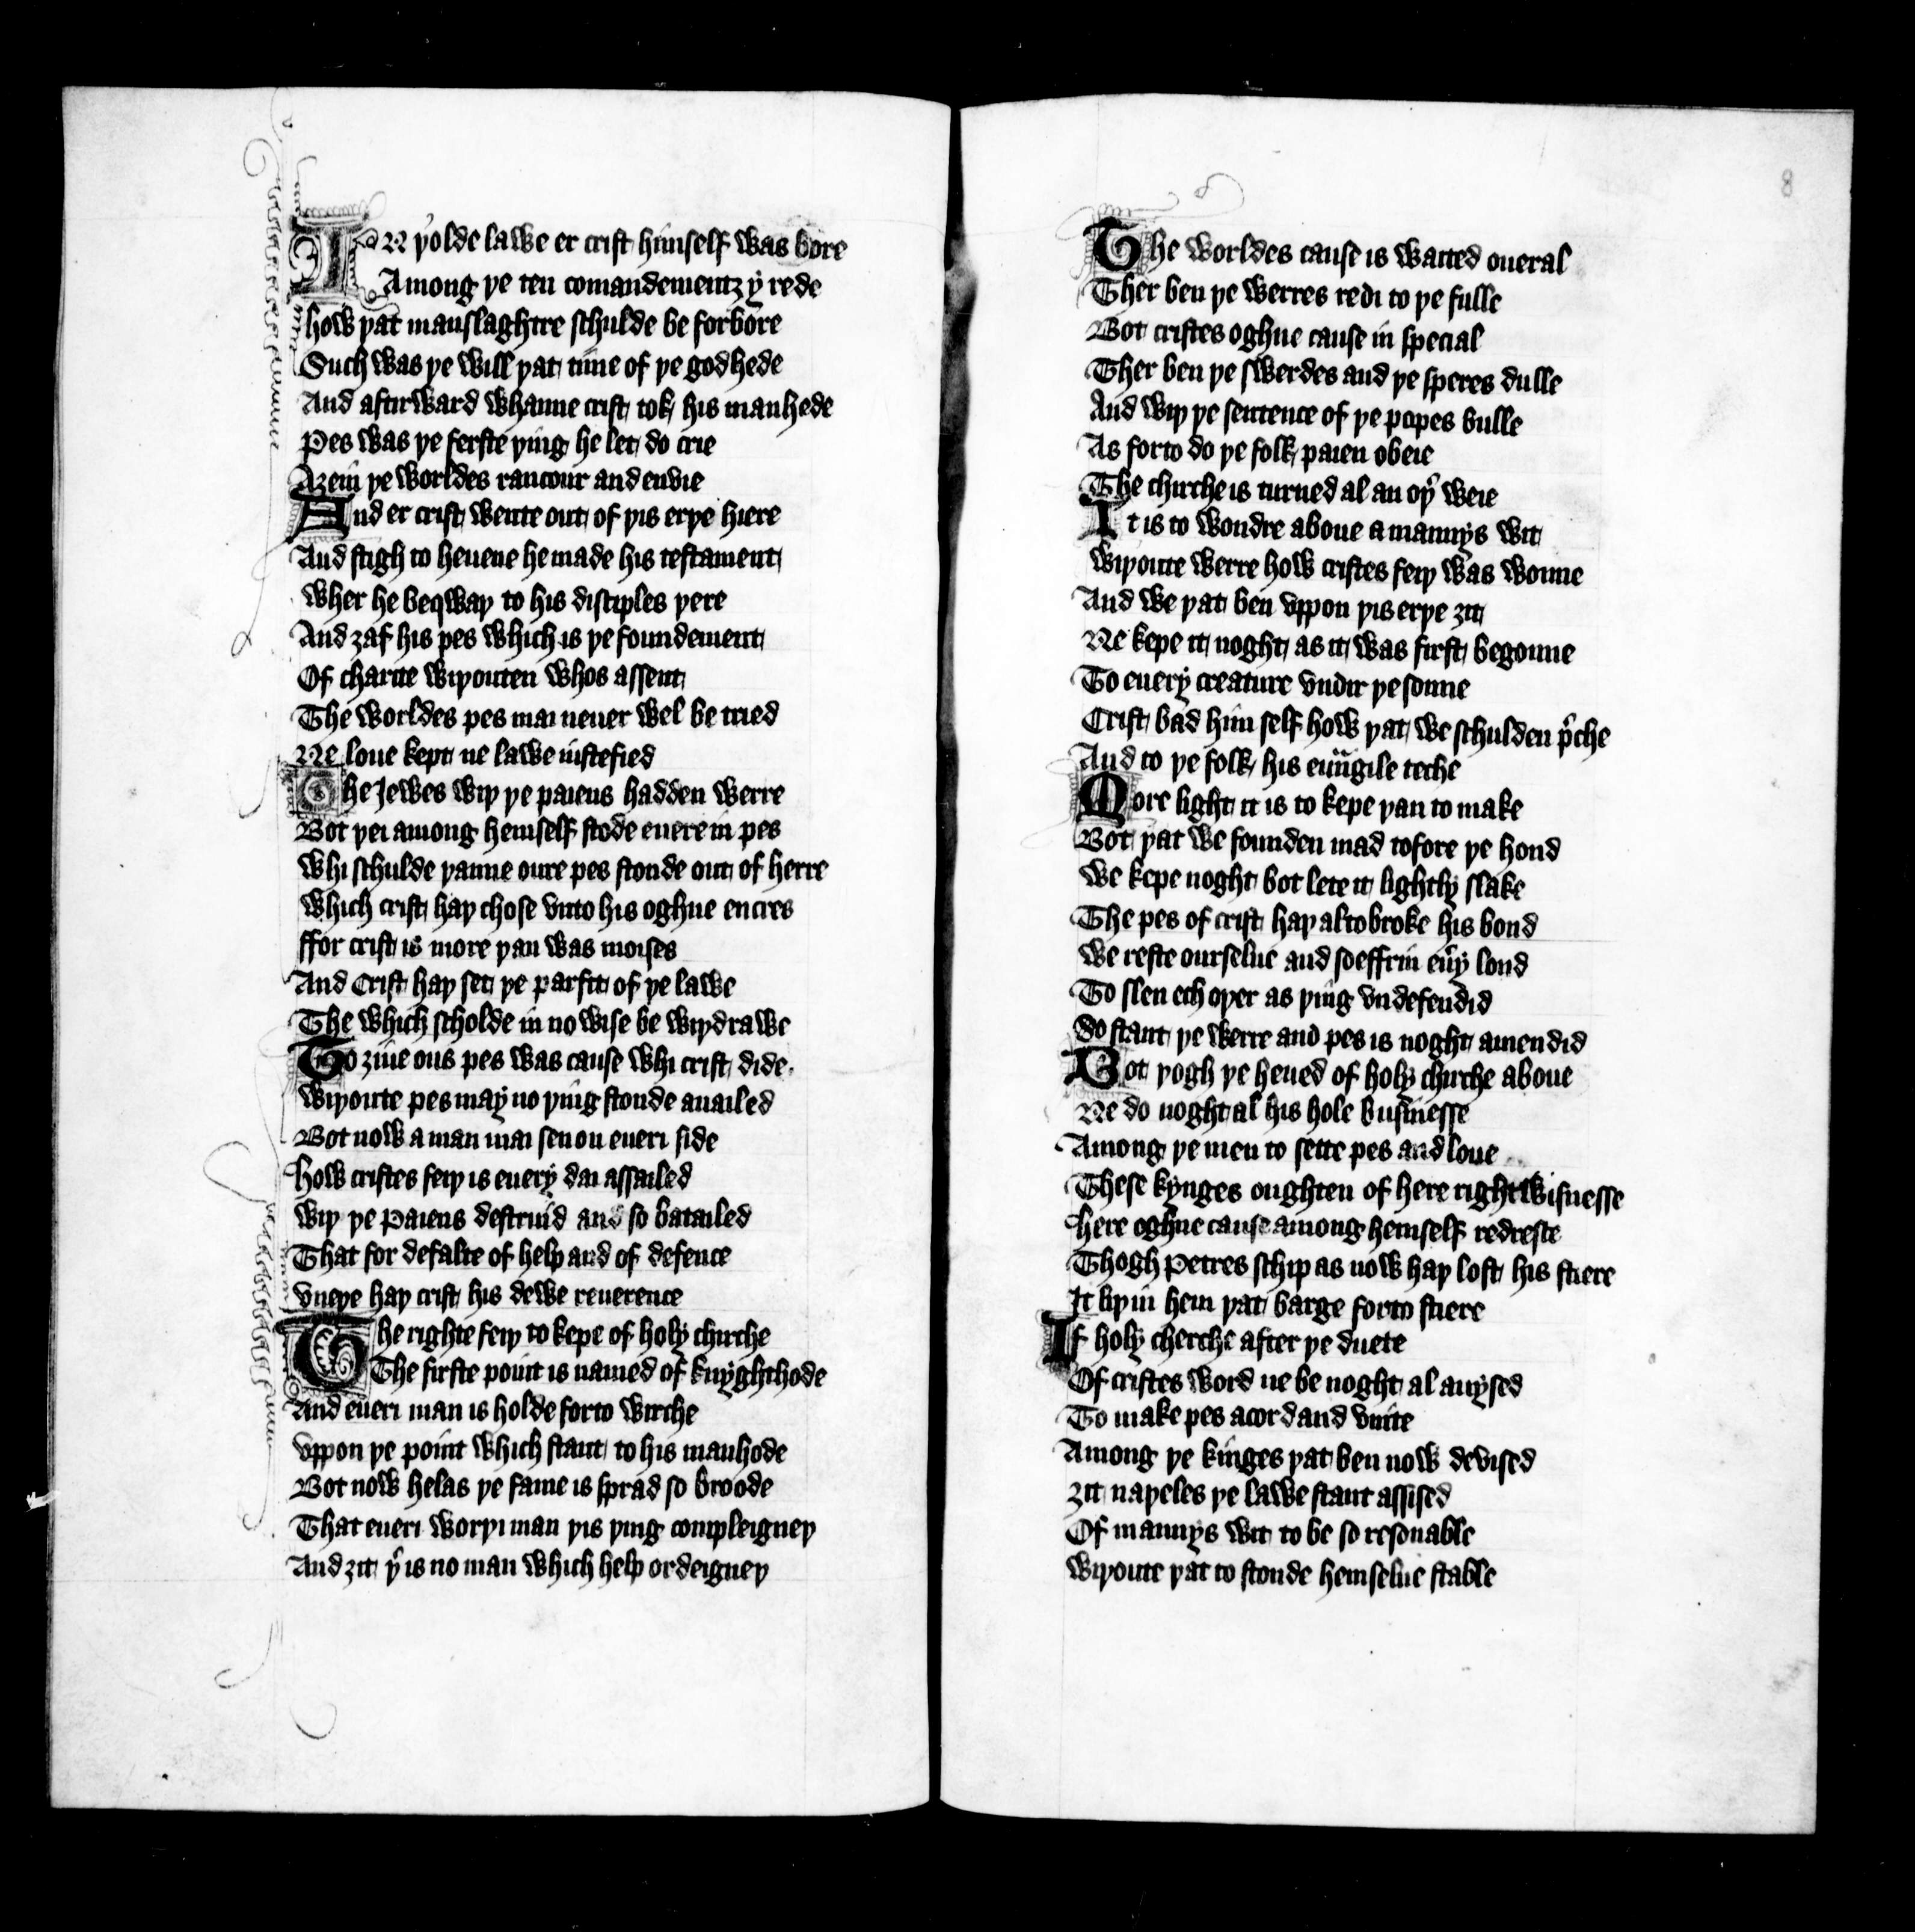 In þ^e olde lawe er crist himself was bore
Among þe ten comandementz y rede
how þat manslaghtre schulde be forbore
Such was þe will þat time of þe godhede
And aftirward whanne crist tok his manhede
Pes was þe ferste þing he let do crie
Aȝein þe worldes rancour and envie
And er crist wente out of þis erþe hiere
And stigh to heuene he made his testament
Wher he beqwaþ to his disciples þere
And ȝaf his pes which is þe foundement
Of charite wiþouten whos assent
The worldes pes mai neuer wel be tried
Ne loue kept ne lawe iustefied
The Jewes wiþ þe paiens hadden werre
Bot þei among hemself stode euere in pes
Whi schulde þanne oure pes stonde out of herre
Which crist haþ chose vnto his oghne encres
ffor crist is more þan was moises
And Crist haþ set þe parfit of þe lawe
The which scholde in no wise be wiþdrawe
To ȝiue ous pes was cause whi crist dide
Wiþoute pes may no þing stonde auailed
Bot now a man mai sen on eueri side
How cristes feiþ is euery dai assailed
Wiþ þe Paiens destruid and so batailed
That for defalte of help and of defence
Vneþe haþ crist his dewe reuerence
The righte feiþ to kepe of holy chirche
The firste point is named of knyghthode
And eueri man is holde forto wirche
Vppon þe point which stant to his manhode
Bot now helas þe fame is sprad so broode
That eueri worþi man þis þing compleigneþ
And ȝit þ^r is no man which help ordeigneþ
8
The worldes cause is waited oueral
Ther ben þe werres redi to þe fulle
Bot cristes oghne cause in special
Ther ben þe swerdes and þe speres dulle
And wiþ þe sentence of þe popes bulle
As forto do þe folk paien obeie
The chirche is turned al an oþ^r weie
It is to wondre aboue a mannys wit
Wiþoute werre how cristes feiþ was wonne
And we þat ben vppon þis erþe ȝit
Ne kepe it noght as it was first begonne
To euery creature vndir þe sonne
Crist bad him self how þat we schulden p^rche
And to þe folk his euangile teche
More light it is to kepe þan to make
Bot þat we founden mad tofore þe hond
We kepe noght bot lete it lightly slake
The pes of crist haþ altobroke his bond
We reste ourselue and soeffrin eu^ry lond
To slen ech oþer as þing vndefendid
So stant þe werre and pes is noght amendid
Bot þogh þe heued of holy chirche aboue
Ne do noght al his hole businesse
Among þe men to sette pes and loue
These kynges oughten of here rightwisnesse
Here oghne cause among hemself redresse
Thogh Petres schip as now haþ lost his stiere
It liþ in hem þat barge forto stiere
If holy cherche after þe duete
Of cristes word ne be noght al auysed
To make pes acord and vnite
Among þe kinges þat ben now devised
Ȝit naþeles þe lawe stant assised
Of mannys wit to be so resonable
Wiþoute þat to stonde hemselue stable